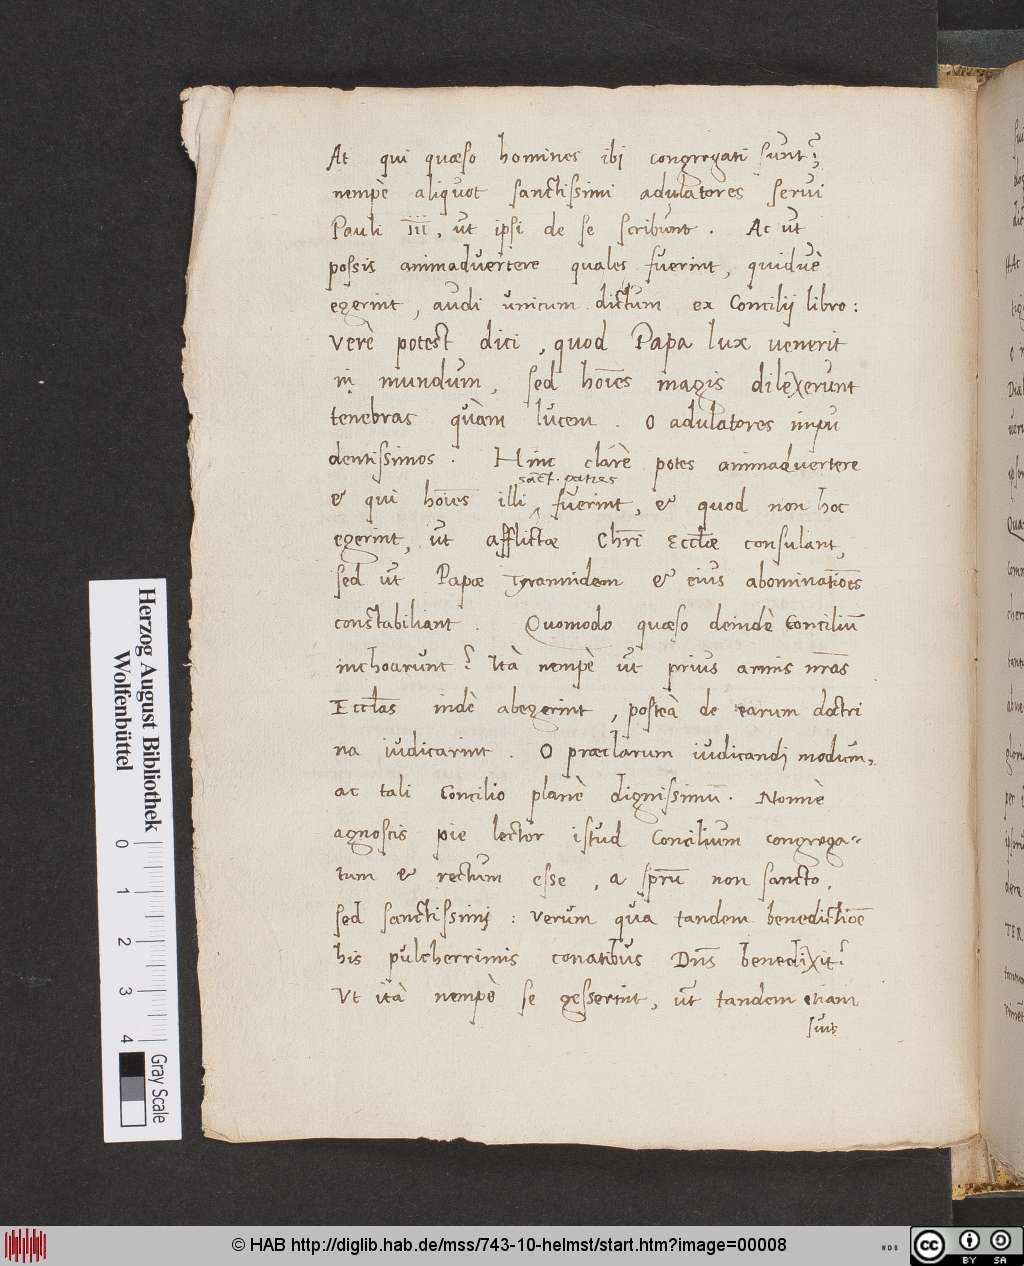 At qui quæso homines ibi congregati sunt?
nempè aliquot sanctissimi adulatores servi
Pauli iii, ut ipsi de se scribunt. Ac ut
possis animadvertere quales fuerint, quidvè
egerint, audi unicum dictum ex Concilij libro:
verè potest dici, quod Papa lux venerit
in mundum, sed hoīes magis dilexerunt
tenebras quàm lucem. O adulatores impu
dentissimos. Hinc clarè potes animadvertere
sāct. patres
& qui hoīes illi ^ fuerint, & quod non hoc
egerint, ut afflictæ Chrī Eccłæ consulant,
sed ut Papæ tyrannidem & eius abominatiōes
constabiliant. Quomodo quæso deindè Conciliū
inchoarunt? Ità nempè ut prius armis nrās
Eccłas indè abegerint, posteà de earum doctri
na iudicarint. O præclarum iudicandi modum,
ac tali Concilio planè dignissimū. Nonnè
agnoscis pie lector istud Concilium congrega=
tum & rectum esse, a spū non sancto,
sed sanctissimi: verum qua tandem benedictiōe
his pulcherrimis conatibus Dnś benedixit?
Ut ità nempè se gesserint, ut tandem etiam
suis
Herzog August Bibliothek
Wolfenbüttel
0 1 2 3 4
Gray Scale
© HAB http://diglib.hab.de/mss/743-10-helmst/start.htm?image=00008
cc BY SA